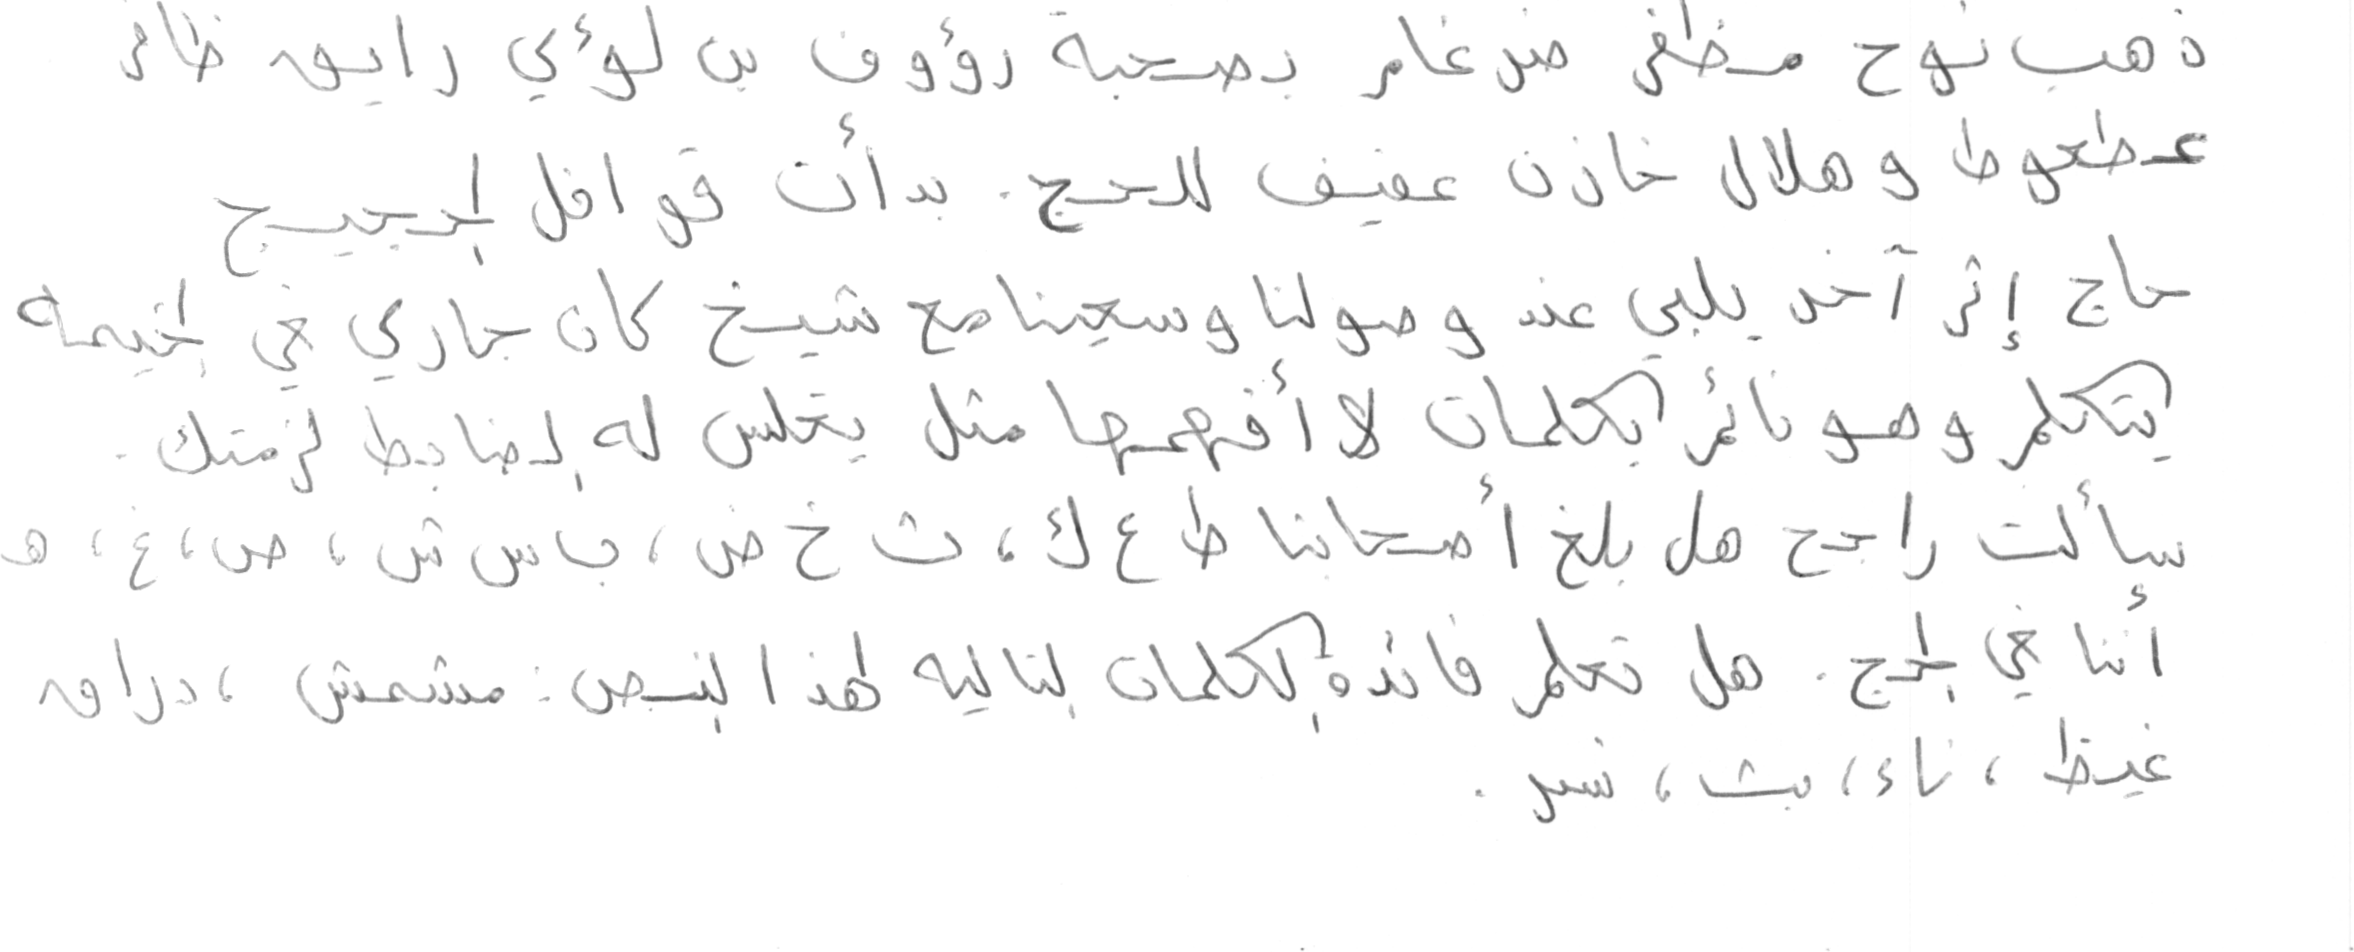 ذهب نوح مظفر ضرغام بصحبة رؤوف بن لؤي رايق ظافر
عطعوط وهلال خازن عفيف للحج. بدأت قوافل الحجيج
حاج إثر آخر يلبي عند وصولنا وسعينا مع شيخ كان جاري في الخيمة
يتكلم وهو نائم بكلمات لا أفهمها مثل يغلس له الضابط لزمتك.
سألت راجح هل بلغ أصحابنا ط ع ك، ث خ ض، ب س ش، ص، غ، ه
أننا في الحج. هل تعلم فائدة الكلمات التالية لهذا النص: مشمش، دراق
غيظ، ناء، بث، نسر.